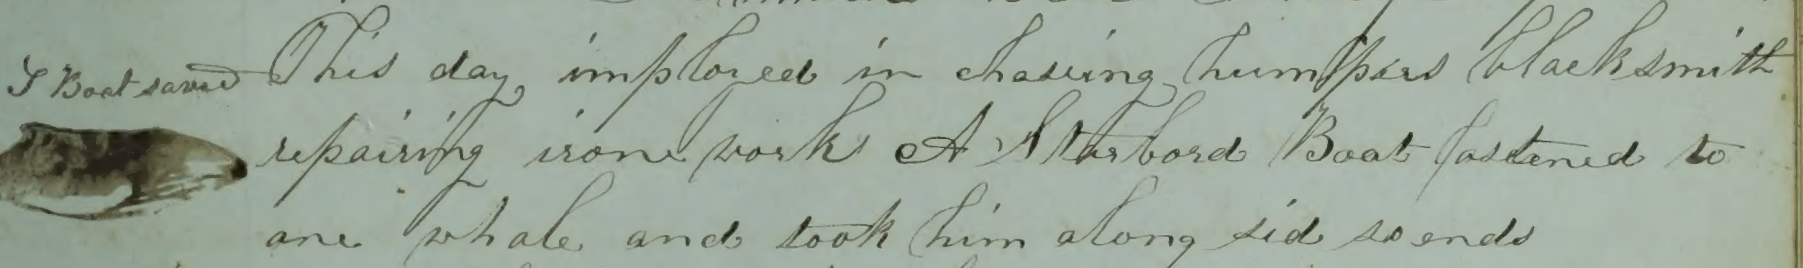 S Boat saved
This day imployed in chasing humpers blacksmith
repairing irone work A Starbord Boat fastened to
one whale and took him along sid so ends